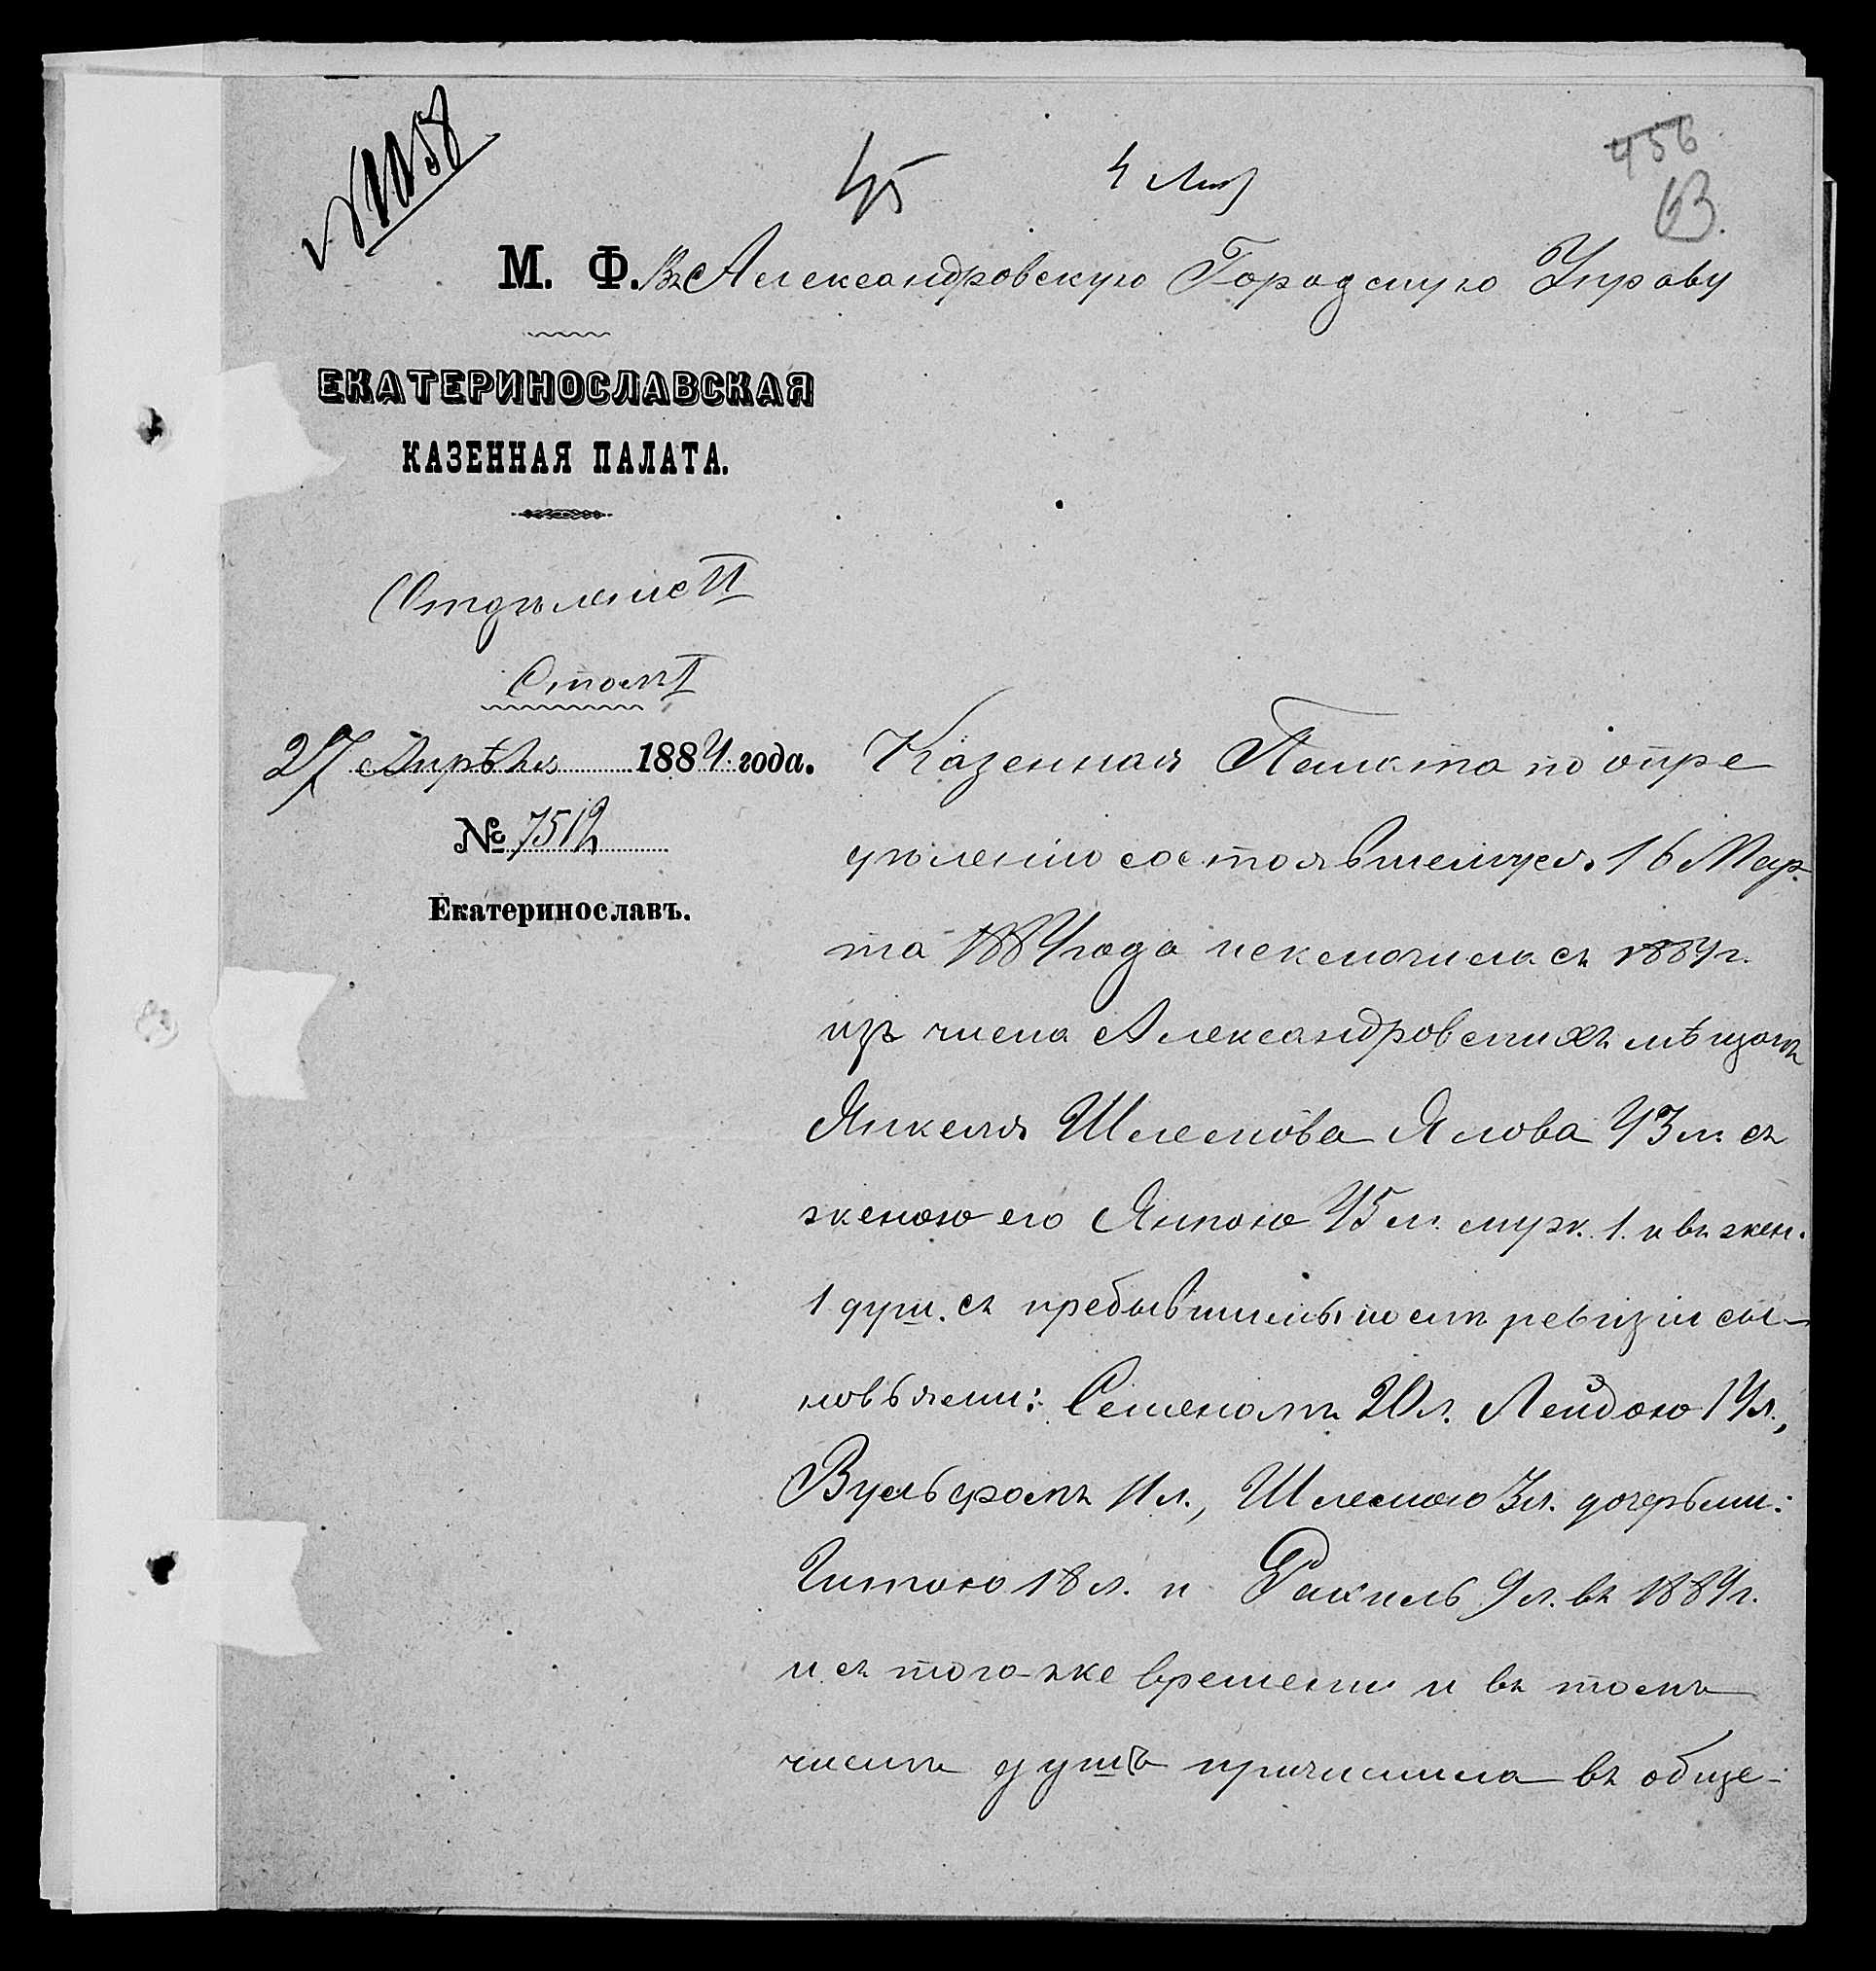 № 1058
45
4 Мая
456
63.
М. Ф.
Въ Александровскую Городскую Управу
ЕКАТЕРИНОСЛАВСКАЯ
КАЗЕННАЯ ПАЛАТА.
Отдѣленіе II
Столъ I
27 Апрѣля 1884 года.
№ 7512
Екатеринославъ.
Казенная Палата по опре
дѣленію состоявшемуся 16 Мар-
та 1884 года исключила съ 1884 г.
изъ числа Александровскихъ мѣщанъ
Янкеля Шлемова Ялова 43 л. съ
женою его 45 л. муж. 1. и въ жен.
1 душ. съ пребывшими послѣ ревизіи сы-
новьями: Семеномъ 20 л. Лейбою 14 л.,
Вульфомъ 11 л., Шлемою 3 л. дочерьми:
Читою 18 л. и Рахиль 9 л. въ 1884 г.
и съ того-же времени и въ томъ
числѣ душъ причислила въ обще-